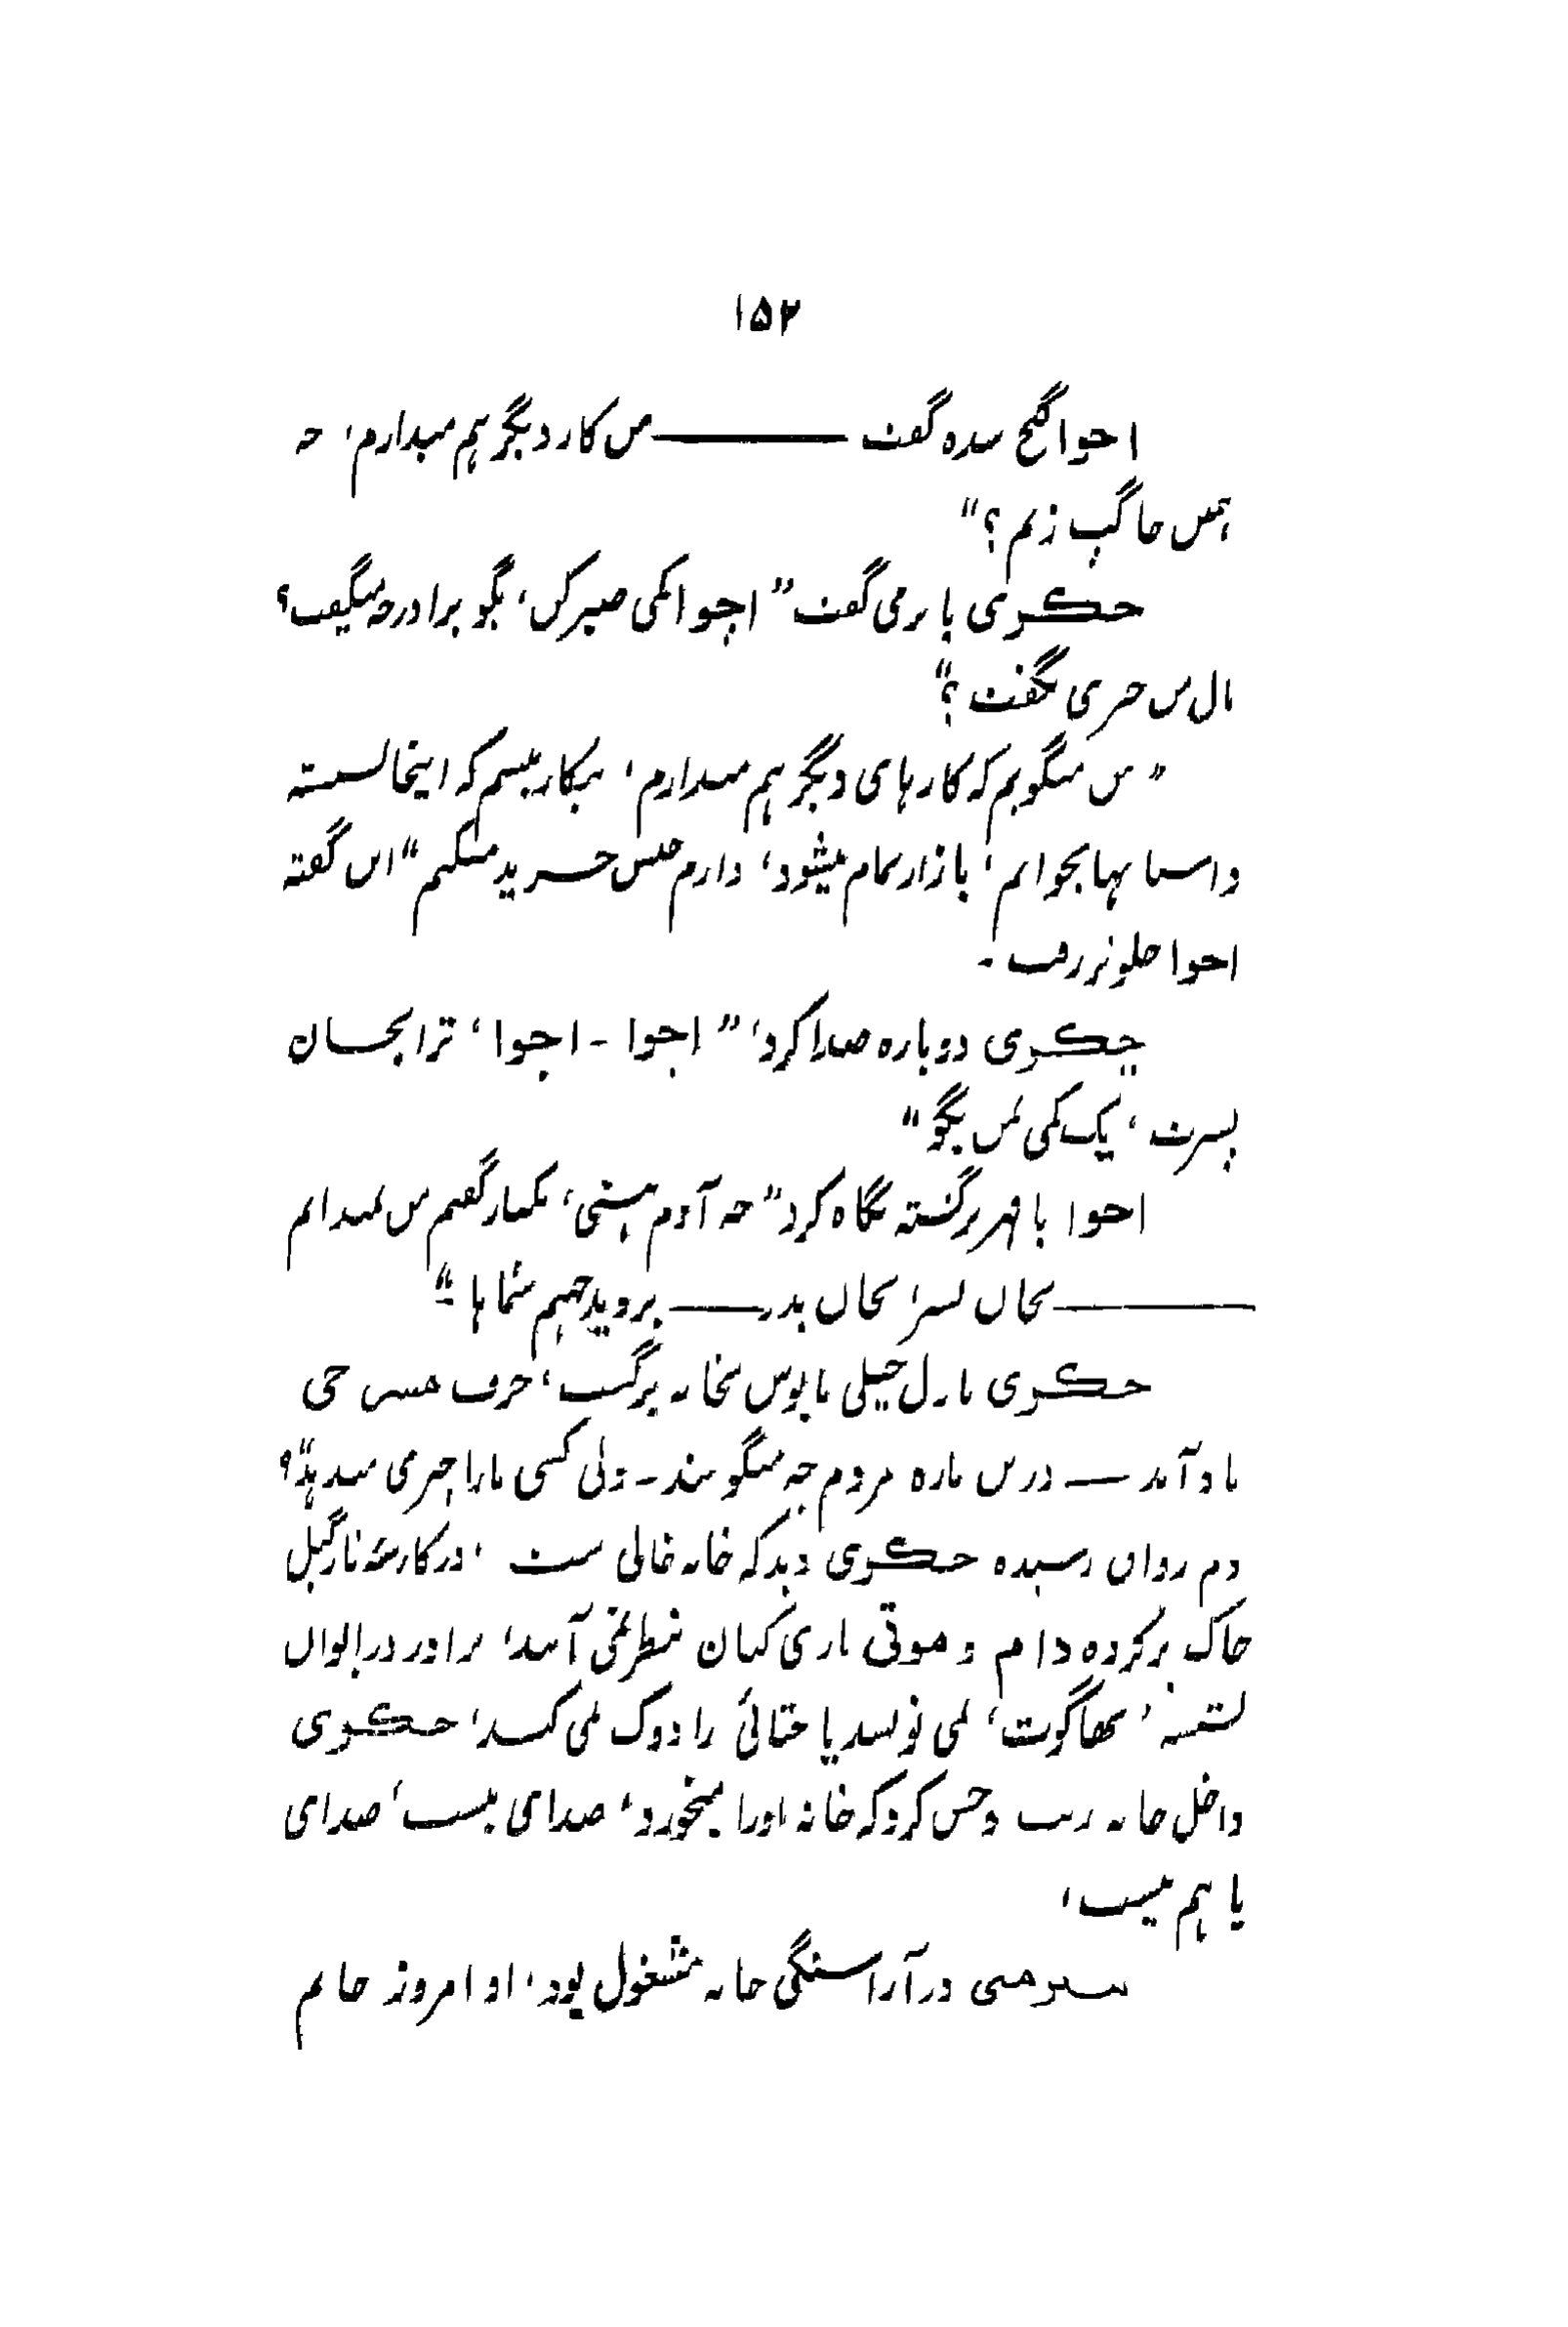 ۱۵۲
اجوا گیج شده گفت ——— من کار دیگر هم میدارم، چه
همین جا گپ زنم؟"
چکری باز می گفت "اجوا کمی صبر کن، بگو برادر چه میگفت؟
بال من چیزی نگفت؟"
"من میگویم که کارهای دیگر هم میدارم، بیکار نیستم که اینجا نشسته
داستانها بخوانم، بازار تمام میشود، دارم جنس خرید میکنم" این گفته
اجوا جلوتر رفت ۔
چکری دوباره صدا کرد، "اجوا ۔ اجوا، ترا بجان
پسرت، یک کمی بمن بگو"
اجوا با قهر برگشته نگاه کرد "چه آدم هستی، یکبار گفتم من نمیدانم
——— بجان پسر، بجان پدر —— بروید جهنم شماها ۔"
چکری با دل خیلی مایوس بخانه برگشت، حرف جی
یاد آمد —— درین باره مردم چه میگویند ۔ ولی کسی ما را چیزی میدهد؟"
دم روان رسیده چکری دید که خانه خالی ست، در نارگیل
خاک پر کرده دام و موتی بازی کنان نظر نمی آمدند، برادر در ایوان
نشسته، بهاگوت، نمی نویسد یا ختائی را دوک نمی کند، چکری
داخل خانه رفت و حس کرد که خانه او را میخورد، صدای نیست، صدای
پا هم نیست،
در آراستگی خانه مشغول بود، او امروز خانم